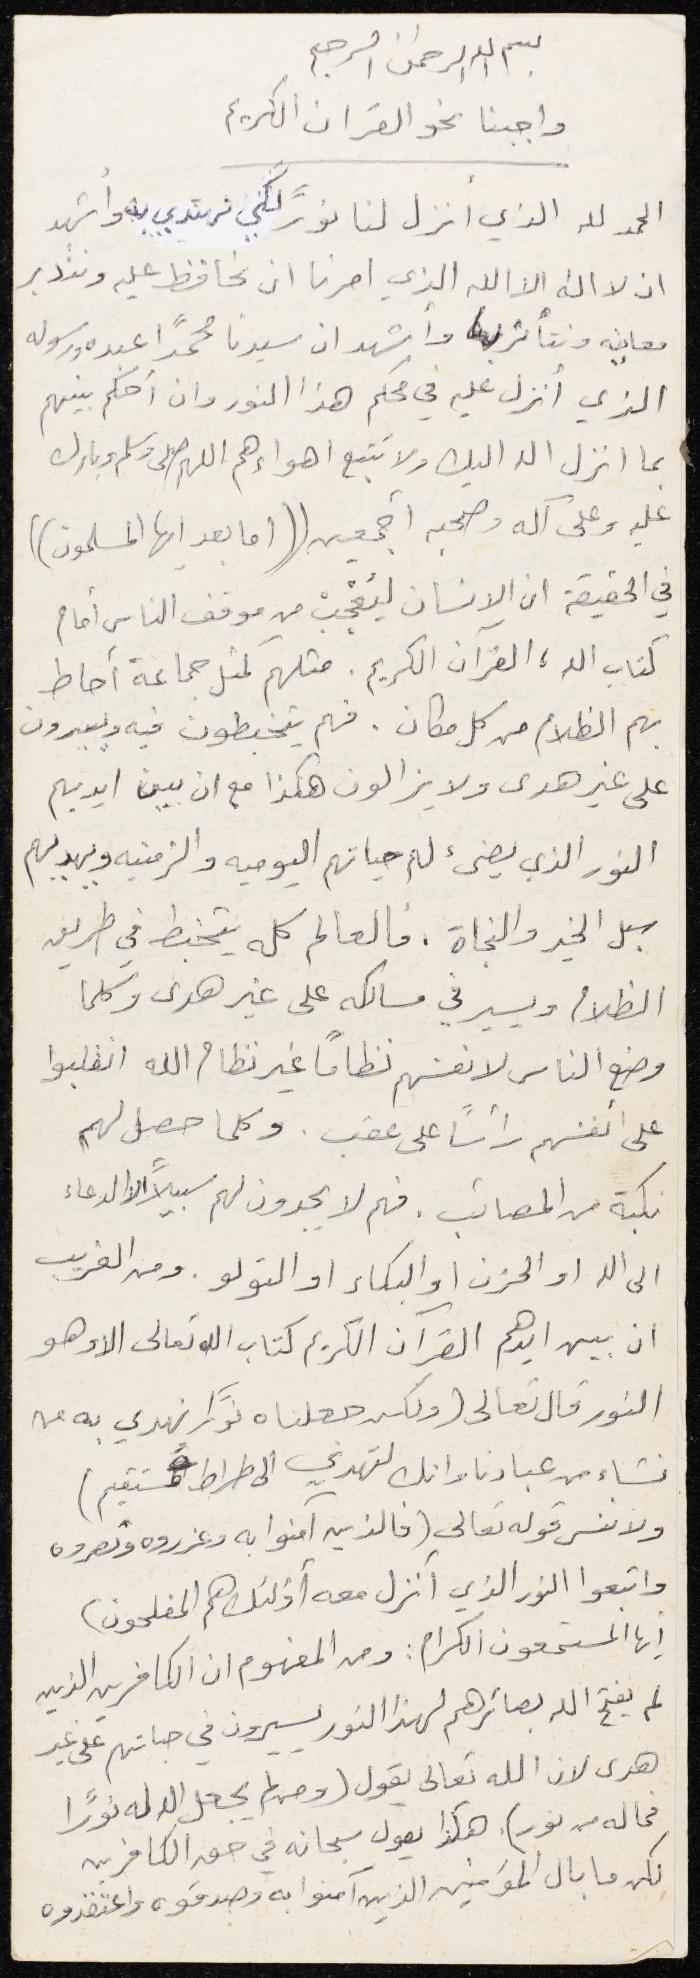 بسم الله الرحمن الرحيم
واجبنا نحو القرآن الكريم
الحمد لله الذي أنزل لنا نورًا لكي نهتدي به وأشهد
ان لا اله الا الله الذي امرنا ان نحافظ عليه ونتدبر
معانيه ونتأثر بها وأشهد ان سيدنا محمدًا عبده ورسوله
الذي أنزل عليه في محكم هذا النور وان أحكم بينهم
بما انزل الله اليك ولا تتبع اهواءهم اللهم صلى وسلم وبارك
عليه وعلى آله وصحبه أجمعين ((اما بعد ايها المسلمون))
في الحقيقة ان الانسان ليُعْجَبْ من موقف الناس أمام
كتاب الله ، القرآن الكريم . مثلهم كمثل جماعة أحاط
بهم الظلام من كل مكان . فهم يتخبطون فيه ويسيرون
على غير هدى ولا يزالون هكذا مع ان بين ايديهم
النور الذي يضىء لهم حياتهم اليوميه والزمنيه ويهديهم
سبل الخير والنجاة . فالعالم كله يتخبط في طريق
الظلام ويسير في مسالكه على غير هدى وكلما
وضع الناس لانفسهم نظامًا غير نظام الله انقلبوا
على أنفسهم رأسًا على عقب . وكلما حصل لهم
نكبة من المصائب . فهم لا يجدون لهم سبيلًا الا الدعاء
الى الله او الحزن او البكاء او . ومن الغريب
ان بين ايدهم القرآن الكريم كتاب الله تعالى الا وهو
النور قال تعالى (ولكن جعلناه نورًا نهدي به من
نشاء من عبادنا وانك لتهدي الى صراط مستقيم)
ولا ننس قوله تعالى (فالذين آمنوا به وعزروه ونصروه
واتبعوا النور الذي أنزل معه أؤلئك هم المفلحون)
أيها المستمعون الكرام : ومن المفهوم ان الكافرين الذين
لم يفتح الله بصائرهم لهذا النور يسيرون في حياتهم على غير
هدى لان الله تعالى يقول (ومن لم يجعل الله له نورًا
فماله من نور) . هكذا يقول سبحانه في حق الكافرين
لكن ما بال المؤمنين الذين آمنوا به وصدقوه واعتقدوه